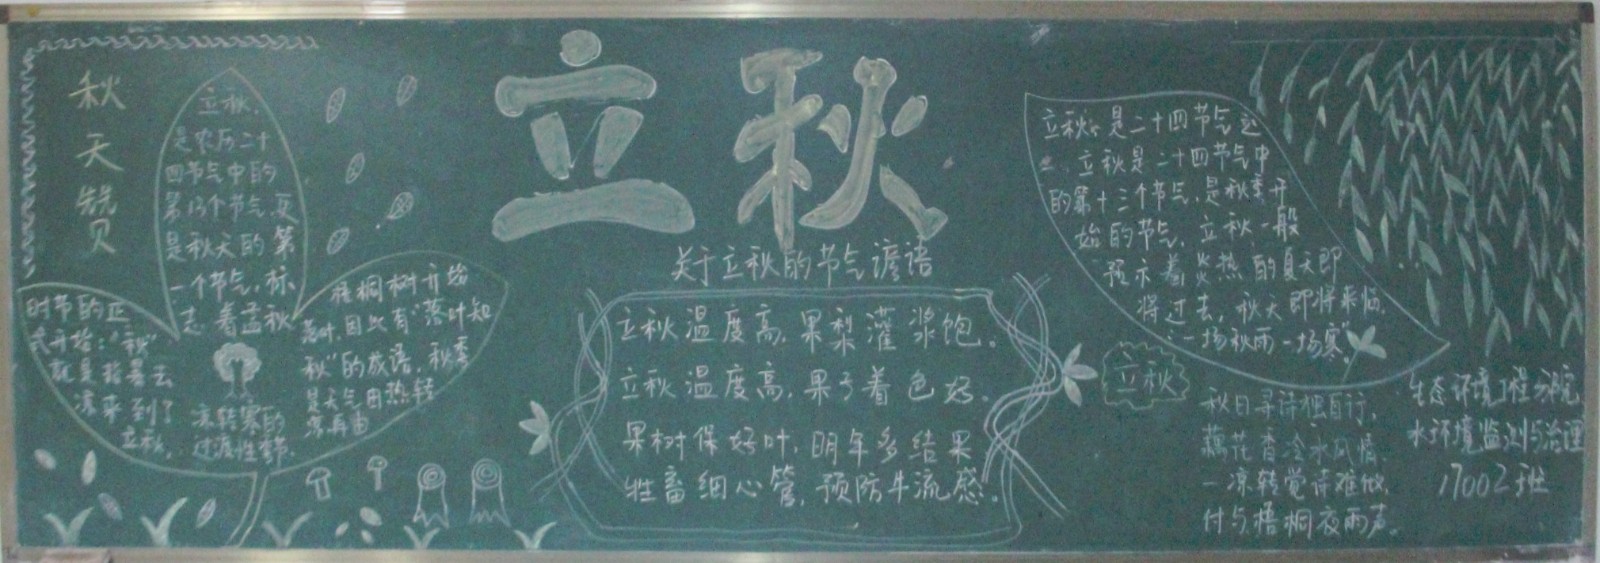 立秋
秋天赞
立秋，
是农历二十
四节气中的
第13个节气，更
是秋天的第
一个节气，标
志着孟秋
时节的正
式开始："秋"
就是指暑去
凉来到？
立秋，
梧桐树开始
落叶，因此有"落叶知
秋"的成语，秋季
是天气由热转
凉，再由
凉转寒的
过渡性季节。
关于立秋的节气谚语
立秋温度高，果梨灌浆饱。
立秋温度高，果子着色好。
果树保好叶，明年多结果
牲畜细心管，预防牛流感。
立秋，是二十四节气之
一，立秋是二十四节气中
的第十三个节气，是秋季开
始的节气，立秋一般
预示着炎热的夏天即
将过去，秋天即将来临，
"一场秋雨一场寒"。
立秋
秋日寻诗独自行，
藕花香冷水风情，
一凉转觉诗难做，
付与梧桐夜雨声。
生态环境工程分院
水环境监测与治理
17002班